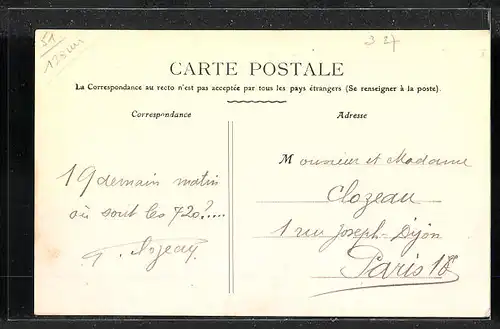 51
3 27
CARTE POSTALE
La Correspondance au recto n'est pas acceptée par tous les pays étrangers (Se renseigner à la poste).
Correspondance
Adresse
19 demain matin
où sont les 720?....
Clozeau
Monsieur et Madame
Clozeau
1 rue Joseph-Dijon
Paris 18e